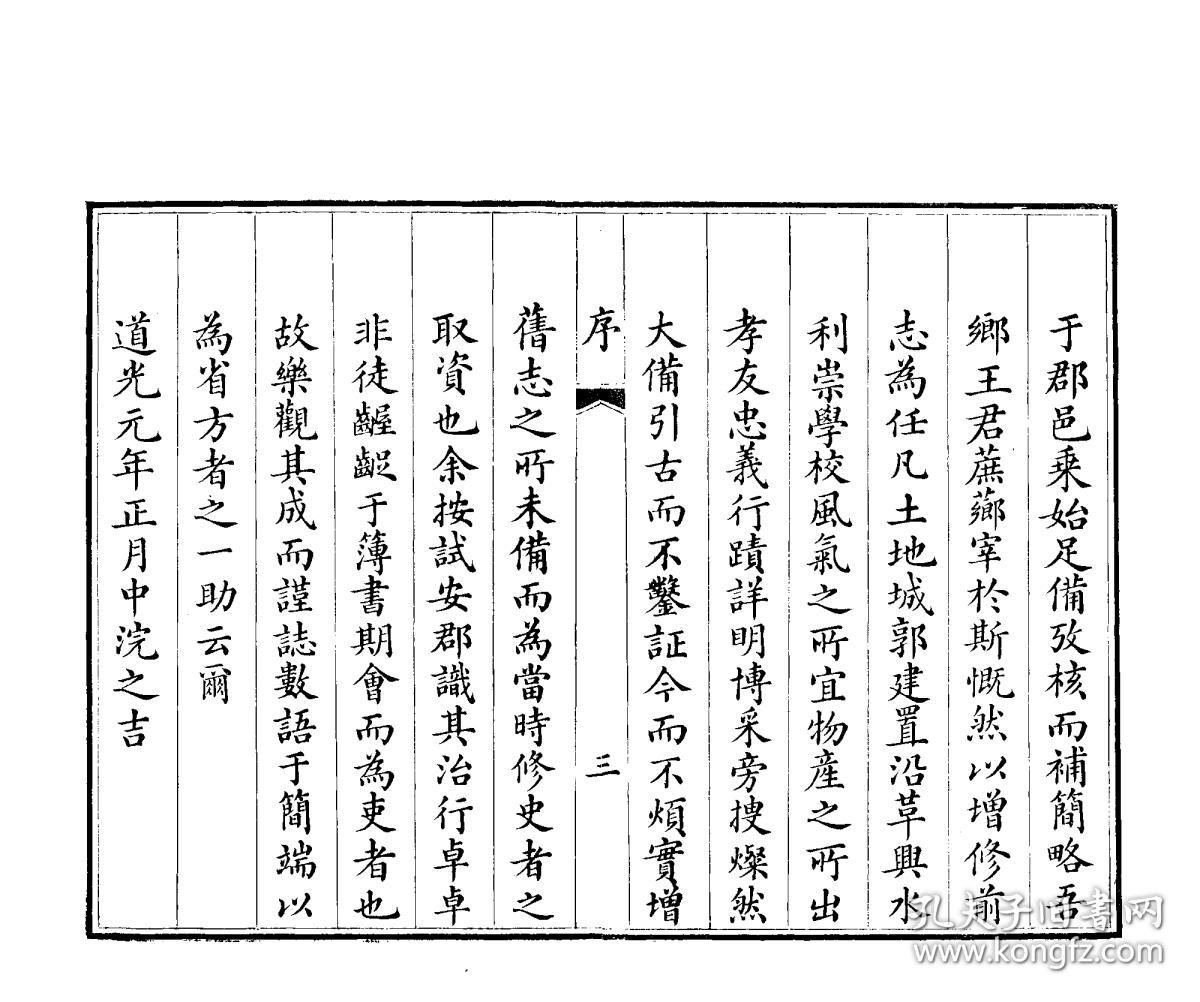 于郡邑乘始足備攷核而補簡略吾
鄉王君蔗薌宰於斯慨然以增修前
志為任凡土地城郭建置沿革興水
利崇學校風氣之所宜物產之所出
孝友忠義行蹟詳明博采旁搜燦然
大備引古而不鑿証今而不煩實增
序
三
舊志之所未備而為當時修史者之
取資也余按試安郡識其治行卓卓
非徒齷齪于簿書期會而為吏者也
故樂觀其成而謹誌數語于簡端以
為省方者之一助云爾
道光元年正月中浣之吉
孔夫子旧書网
www.kongfz.com